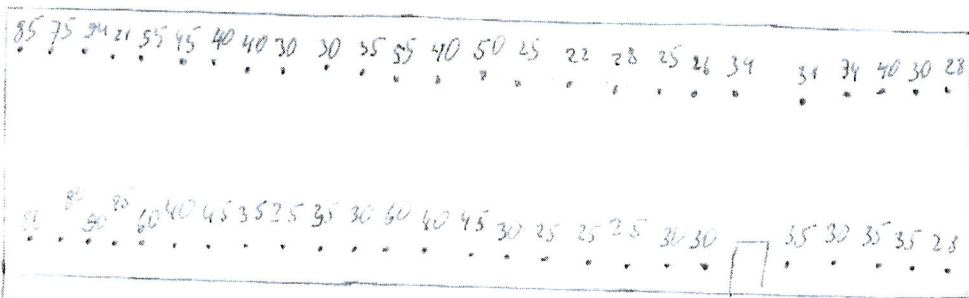 85 75 94 21 55 45 40 40 30 30 35 55 40 50 25 22 28 25 26 34 31 34 40 30 28
90 60 40 45 35 25 35 30 60 40 45 30 25 25 25 30 30 35 30 35 35 28